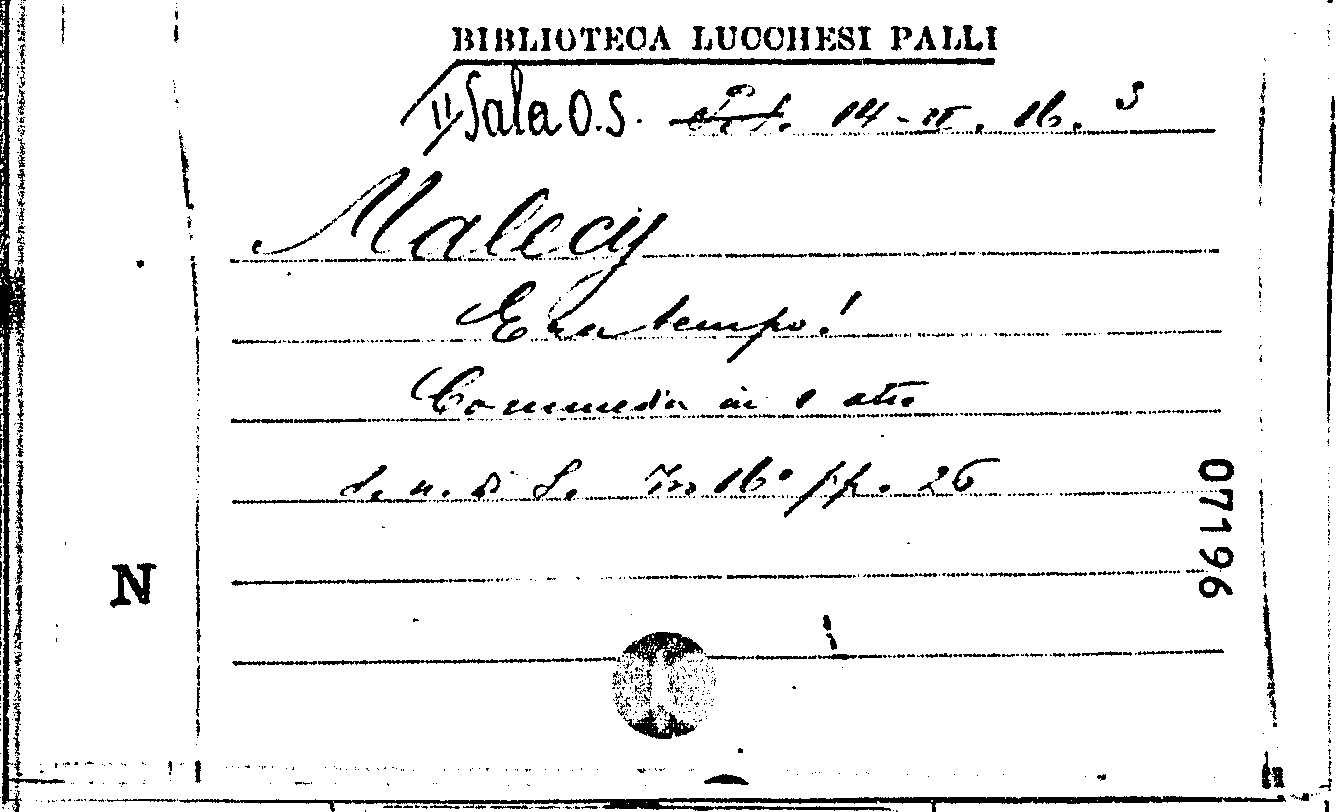 BIBLIOTECA LUCCHESI PALLI
II Sala O.S. 14-II. 16. 3
Malecy
Era tempo!
Commedia in 1 atto
S. n. di S. In 16° pp. 26
07196
N